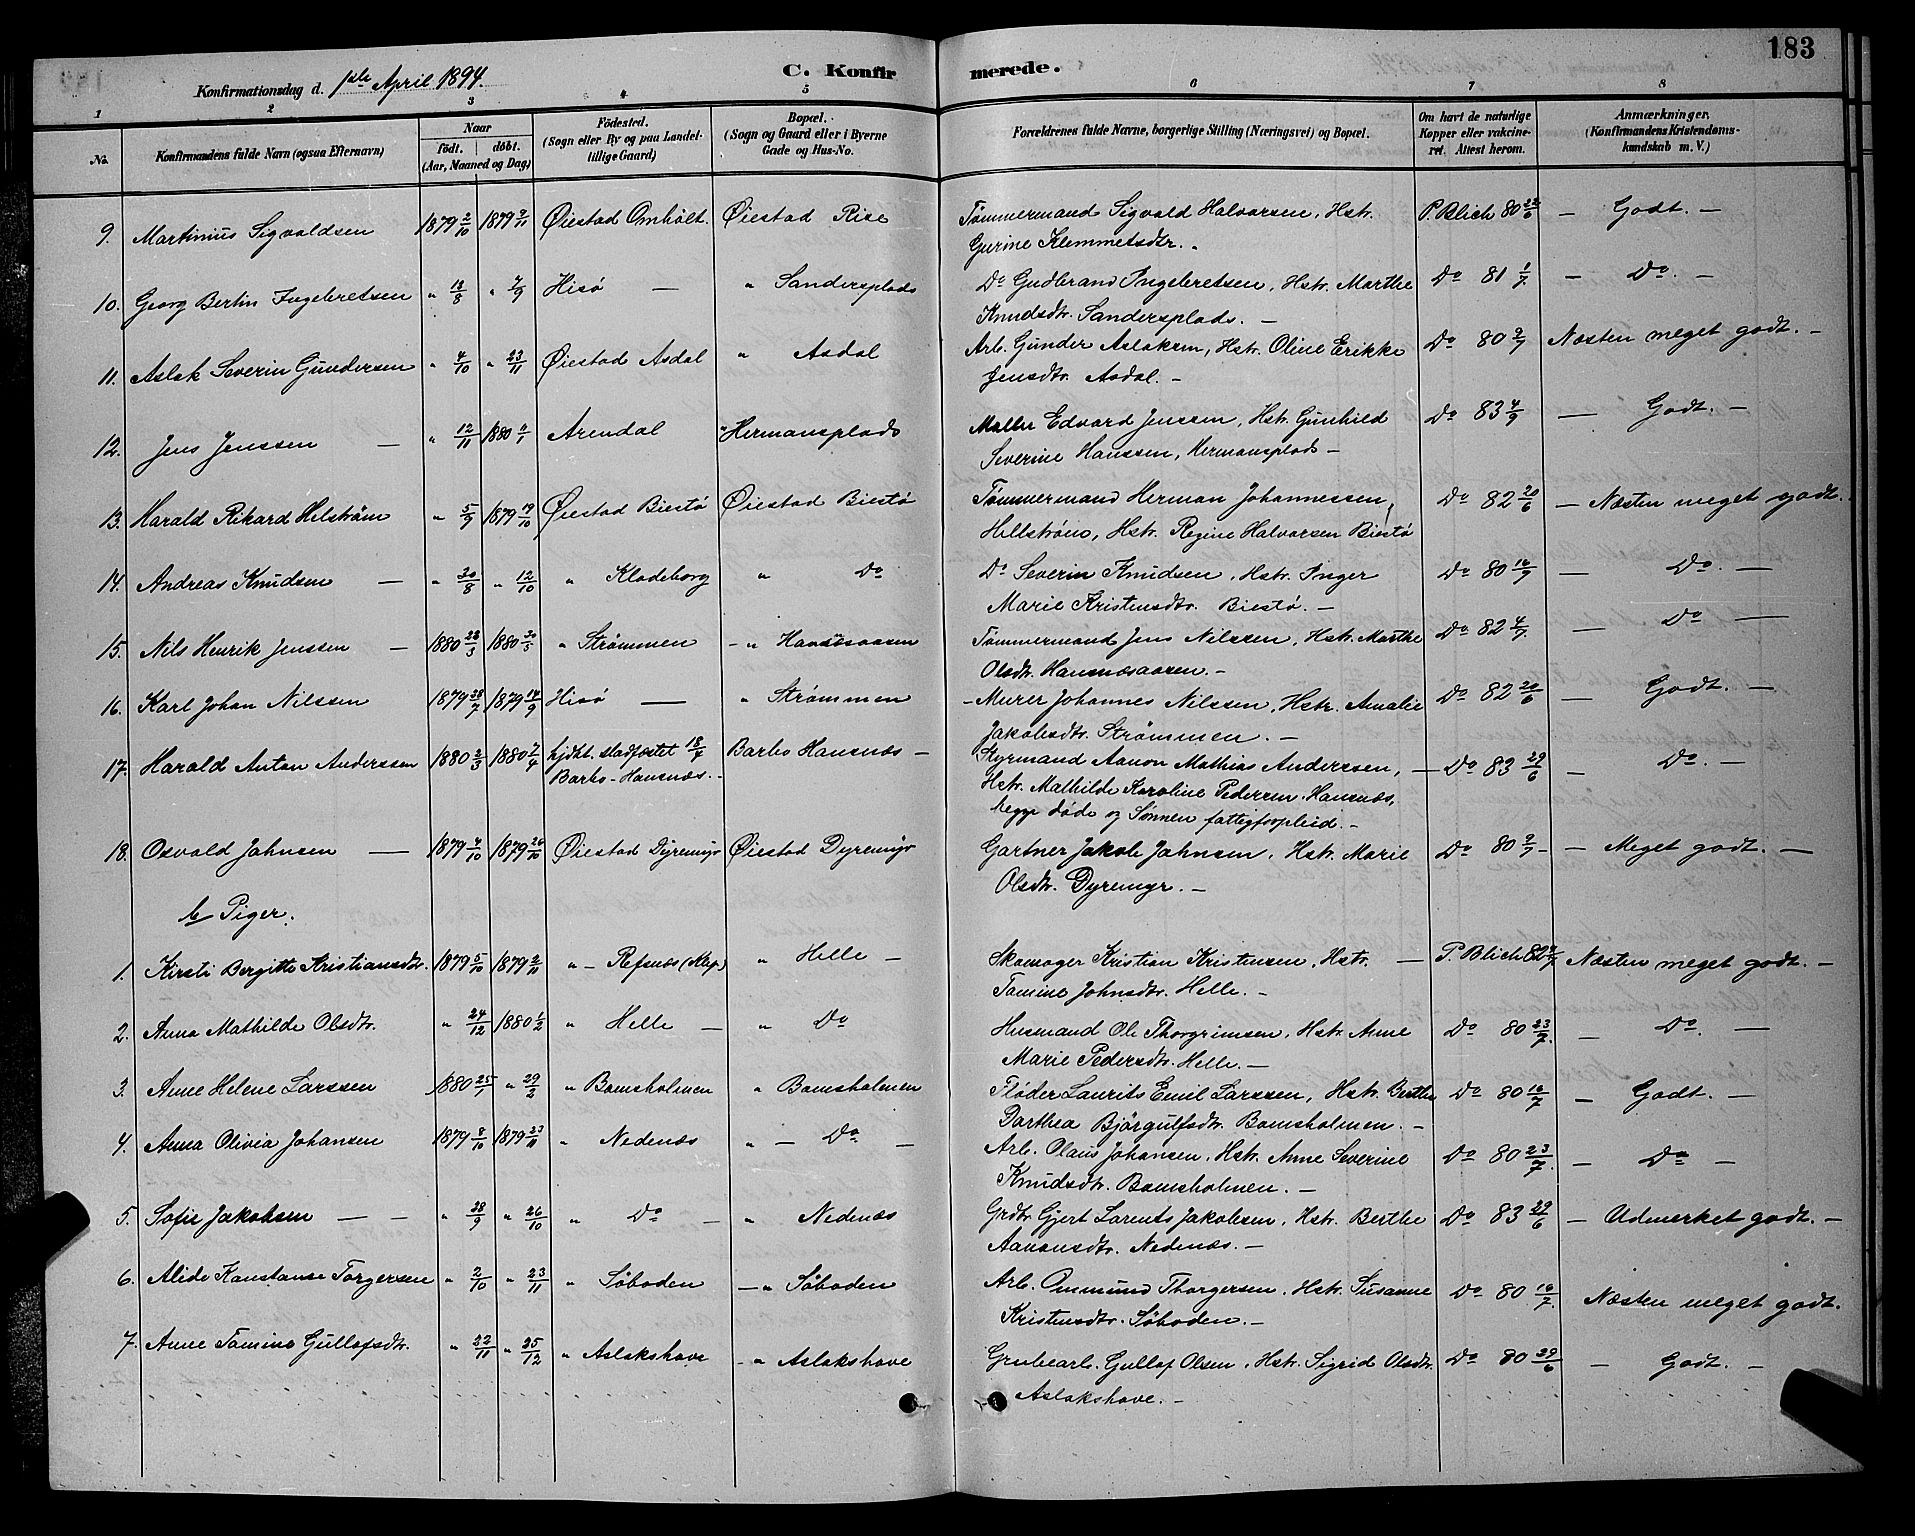 183
C. Konfirmerede.
Konfirmationsdag d. 1ste April 1894.
1 2 3 4 5 6 7 8
No. Konfirmandens fulde Navn (ogsaa Efternavn) Naar födt. döbt. (Aar, Maaned og Dag) Födested. (Sogn eller By og paa Landet tillige Gaard) Bopæl. (Sogn og Gaard eller i Byerne Gade og Hus-No. Forældrenes fulde Navne, borgerlige Stilling (Næringsvei) og Bopæl. Om havt de naturlige Kopper eller vakcineret. Attest herom. Anmærkninger. (Konfirmandens Kristendomskundskab m. V.)
9. Martinius Sigvaldsen 1879 2/10 1879 9/11 Øiestad Omholt. Øiestad Rise Tømmermand Sigvald Halvorsen, Hstr. P. Blich 80 22/6 — Godt. —
Gurine Klemmetsdtr.
10. Georg Bertin Ingebretsen " 13/8 " 7/9 Hisö — " Sandersplads Do Gudbrand Ingebretsen, Hstr. Marthe Do 81 1/7 — Do. —
Knudsdtr. Sandersplads. —
11. Aslak Severin Gundersen " 4/10 " 23/11 Øiestad Asdal " Asdal Arb. Gunder Aslaksen, Hstr. Oline Erikke Do 80 9/7 Næsten meget godt. —
Jensdtr. Asdal. —
12. Jens Jenssen — " 12/11 1880 4/1 Arendal " Hermansplads Maller Edvard Jenssen, Hstr. Gunhild Do 83 4/9 — Godt. —
Severine Hanssen, Hermansplads —
13. Harald Rikard Helström " 5/9 1879 19/10 Øiestad Biestö Øiestad Biestö Tømmermand Herman Johannessen Do 82 20/6 — Næsten meget godt.
Hellström, Hstr. Regine Halvorsen Biestö
14. Andreas Knudsen — " 30/8 " 12/10 " Klodeborg " Do Do Severin Knudsen, Hstr. Inger Do 80 10/9 — Do. —
Marie Kristensdtr. Biestö. —
15. Nils Henrik Jenssen — 1880 28/3 1880 30/5 " Strømmen - " Hansnæsaasen Tømmermand Jens Nilssen, Hstr. Marthe Do 82 4/7 — Do —
Olsdtr. Hansnæsaasen. —
16. Karl Johan Nilssen 1879 28/7 1879 14/9 Hisö — " Strømmen - Murer Johannes Nilssen, Hstr. Amalie Do 82 20/6 — Godt. —
Jakobsdtr. Strømmen. —
17. Harald Anton Anderssen 1880 2/3 1880 7/4 hjdbt. stadfæstet 18/7 Barbo Hansnæs — Styrmand Aanon Mathias Anderssen, — Do 83 29/6 — Do. —
Barbo-Hansnæs. Hstr. Mathilde Karoline Pedersen. Hansnæs,
begge døde og Sønnen fattigforpleid. —
18. Osvald Jahnsen — 1879 4/10 1879 26/10 Øiestad Dyremyr Øiestad Dyremyr Gartner Jakob Jahnsen, Hstr. Marie Do 80 9/7 — Meget godt. —
Olsdtr. Dyremyr. —
b Piger.
1. Kirsti Bergitte Kristiansdtr. 1879 5/10 1879 2/11 " — Refsnæs (Klep.) " Helle — Skomager Kristian Kristensen, Hstr. — P. Blich 82 4/7 Næsten meget godt. —
Tamine Johnsdtr. Helle. —
2. Anna Mathilde Olsdtr. " 24/12 1880 1/2 " Helle — " Do Husmand Ole Thorgrimsen, Hstr. Anne Do 80 23/7. — Do. —
Marie Pedersdtr. Helle. —
3. Anne Helene Larssen 1880 25/1 " 29/2 " Bomsholmen " Bomsholmen Fløder Laurits Emil Larssen, Hstr. Berthe Do 80 10/7 — Godt. —
Dorthea Bjørgulfsdtr. Bomsholmen. —
4. Anna Olivia Johansen 1879 8/10 1879 23/11 " Nedenæs " — Do — Arb. Olaus Johansen, Hstr. Anne Severine Do 80 23/7. — Do —
Knudsdtr. Bomsholmen. —
5. Sofie Jakobsen — — " 28/9 " 26/10 " Do — " Nedenæs Grdbr. Gjert Lorents Jakobsen, Hstr. Berthe Do 83 29/6 — Udmerket godt. —
Aanonsdtr. Nedenæs. —
6. Alide Konstanse Torgersen " 2/10 " 23/11 " Söboden — " Söboden Arb. Ommund Thorgersen, Hstr. Susanne Do 80 10/7. Næsten meget godt.
Kristensdtr. Söboden. —
7. Anne Tamine Gullofsdtr. " 22/11 " 25/12 " Aslakshave - " Aslakshave Grubearb. Gullof Olsen, Hstr. Sigrid Olsdtr. Do 80 29/6 — Godt. —
Aslakshave. —